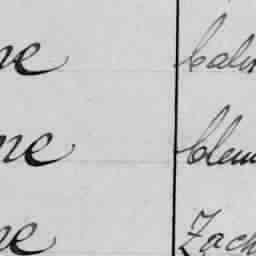 ne Calv
ne Clem
ne Zach